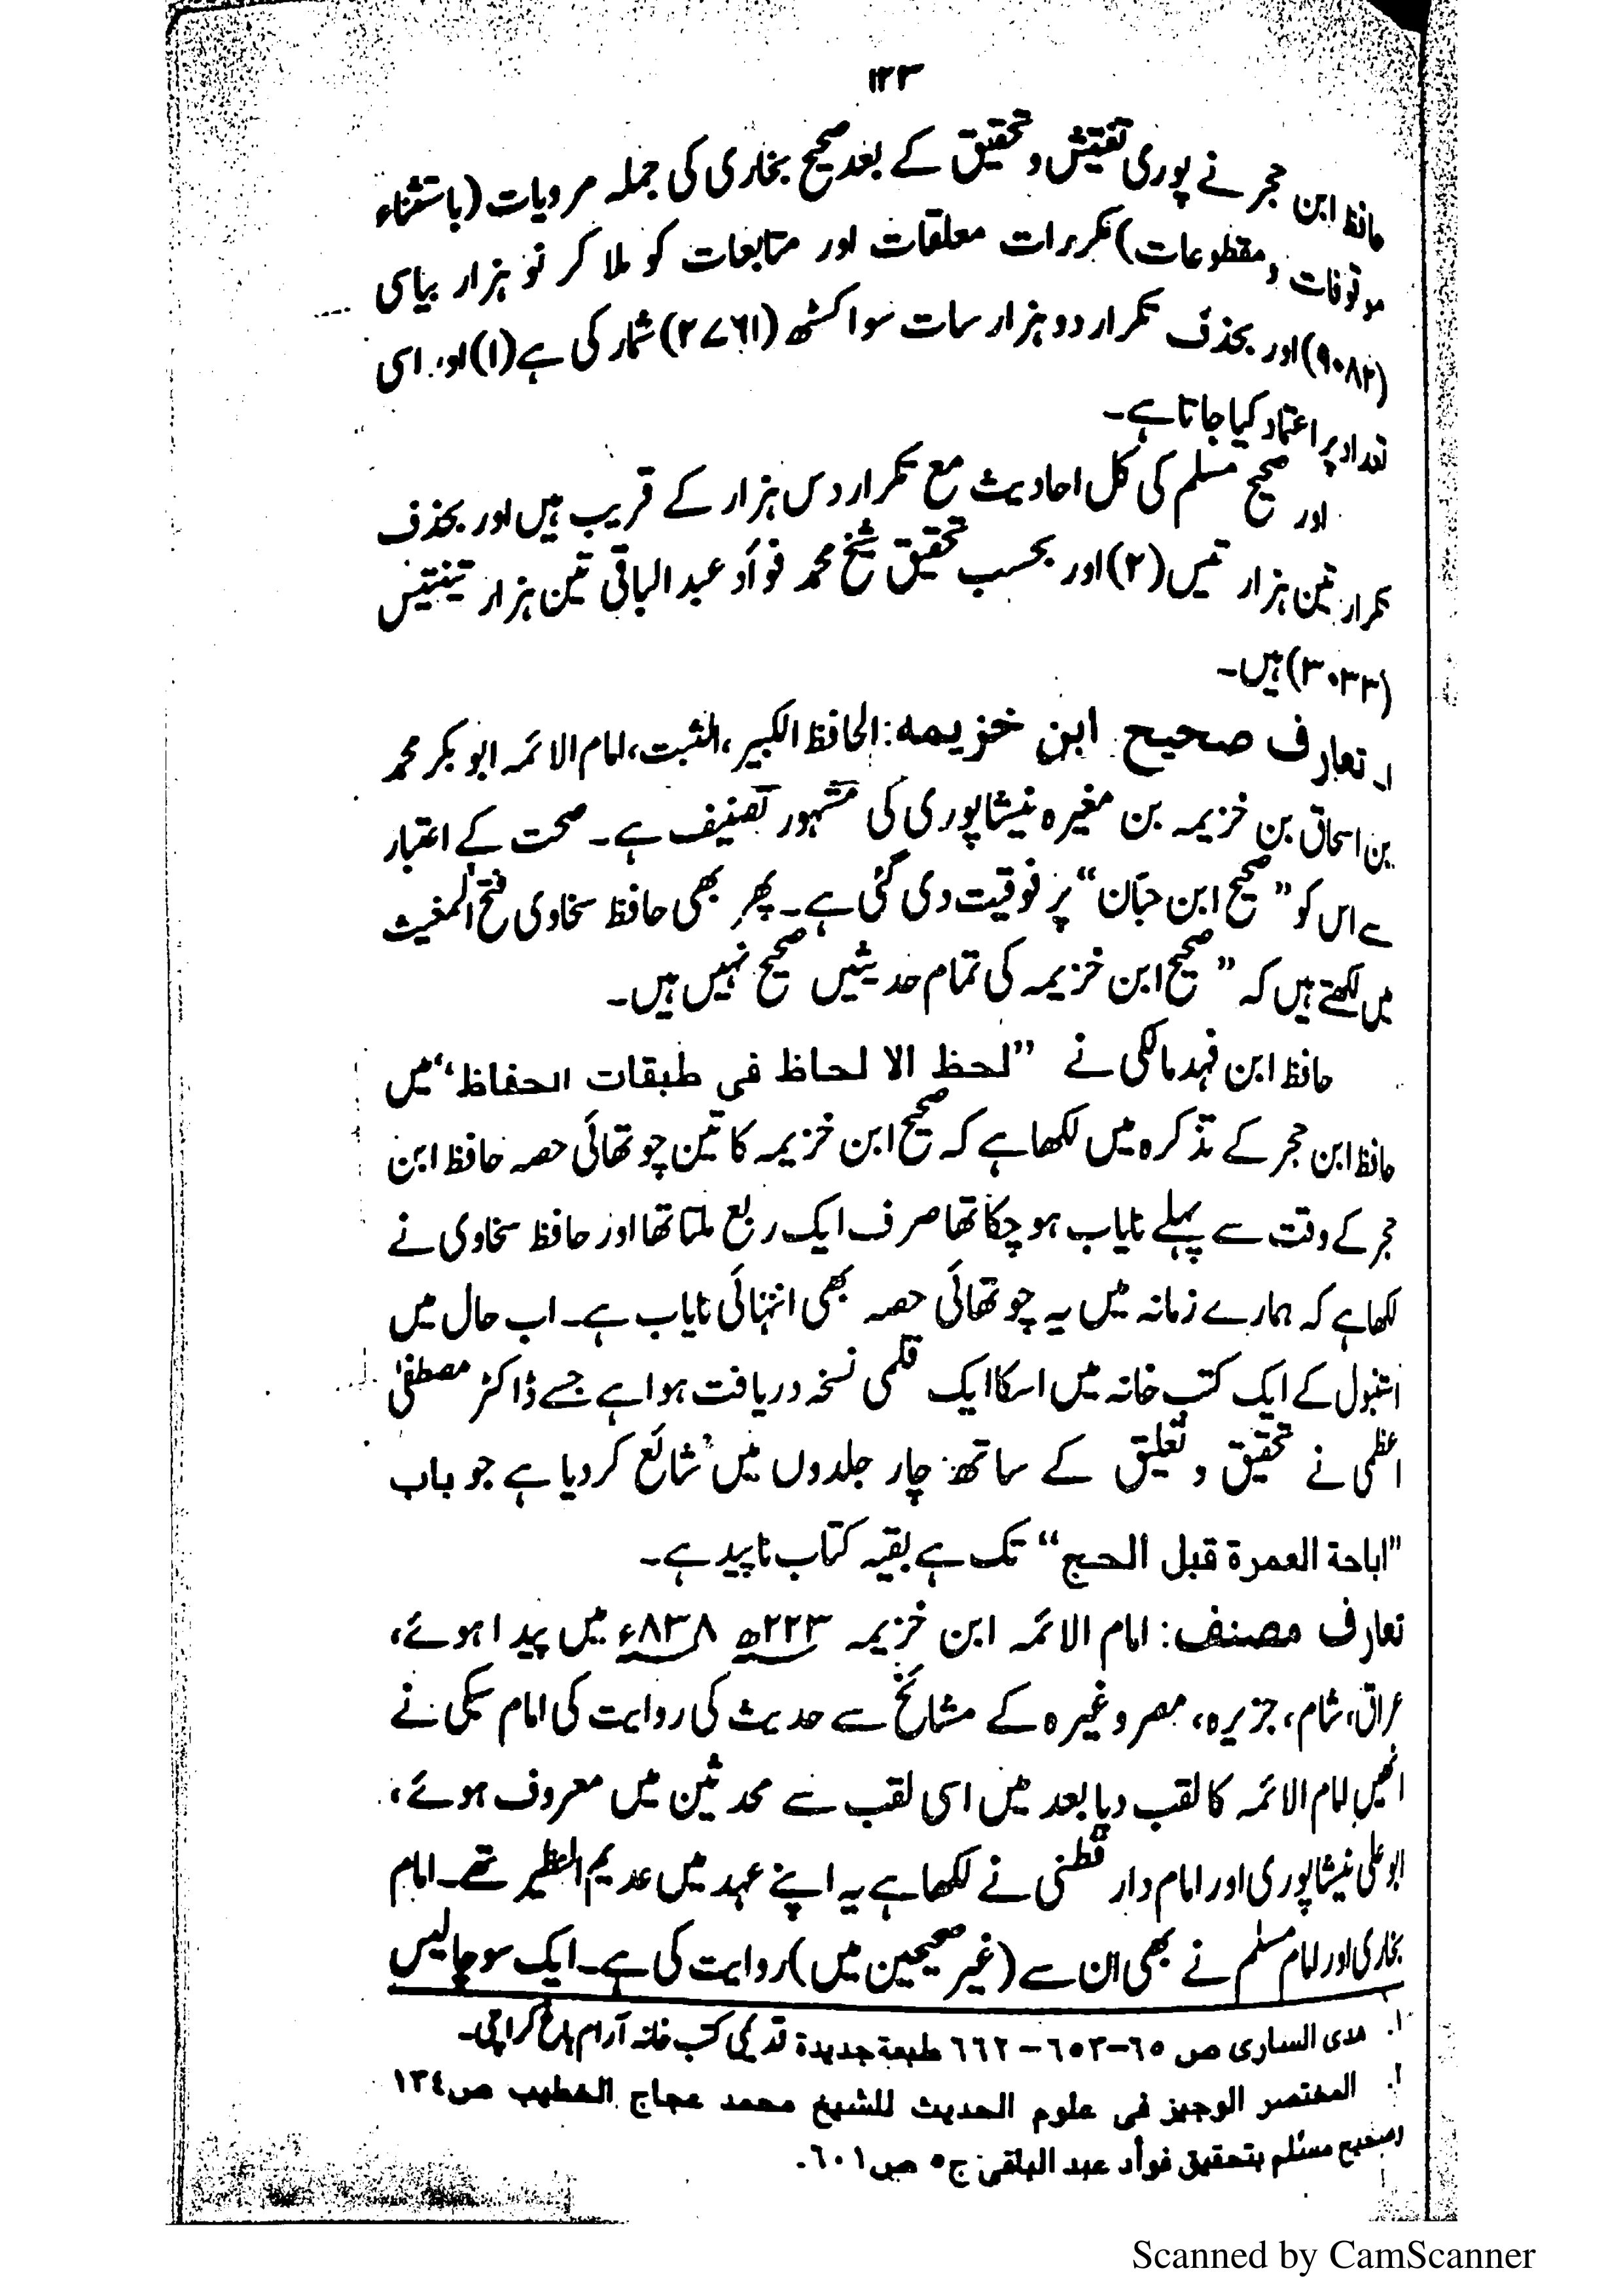 ۱۲۳
حافظ ابن حجر نے پوری تفتیش و تحقیق کے بعد صحیح بخاری کی جملہ مرویات (باستثناء
موقوفات و مقطوعات) مکررات معلقات اور متابعات کو ملا کر نو ہزار بیاسی
(۹۰۸۲) اور بحذف تکرار دو ہزار سات سو اکسٹھ (۲۷۶۱) شمار کی ہے (۱) اور اسی
تعداد پر اعتماد کیا جاتا ہے۔
اور صحیح مسلم کی کل احادیث مع تکرار دس ہزار کے قریب ہیں اور بحذف
تکرار تین ہزار تیس (۲) اور بحسب تحقیق شیخ محمد فوأد عبد الباقی تین ہزار تینتیس
(۳۰۳۳) ہیں۔
۱۔ تعارف صحیح ابن خزیمہ: الحافظ الکبیر، الثبت، امام الائمہ ابو بکر محمد
بن اسحاق بن خزیمہ بن مغیرہ نیشاپوری کی مشہور تصنیف ہے۔ صحت کے اعتبار
سے اس کو ”صحیح ابن حبّان“ پر فوقیت دی گئی ہے۔ پھر بھی حافظ سخاوی فتح المغیث
میں لکھتے ہیں کہ ”صحیح ابن خزیمہ کی تمام حدیثیں صحیح نہیں ہیں۔
حافظ ابن فہد مالکی نے ”لحظ الا لحاظ فی طبقات الحفاظ“ میں
حافظ ابن حجر کے تذکرہ میں لکھا ہے کہ صحیح ابن خزیمہ کا تین چوتھائی حصہ حافظ ابن
حجر کے وقت سے پہلے نایاب ہو چکا تھا صرف ایک ربع ملتا تھا اور حافظ سخاوی نے
لکھا ہے کہ ہمارے زمانہ میں یہ چوتھائی حصہ بھی انتہائی نایاب ہے۔ اب حال میں
استنبول کے ایک کتب خانہ میں اسکا ایک قلمی نسخہ دریافت ہوا ہے جسے ڈاکٹر مصطفیٰ
اعظمی نے تحقیق و تعلیق کے ساتھ چار جلدوں میں شائع کر دیا ہے جو باب
”اباحة العمرة قبل الحج“ تک ہے بقیہ کتاب ناپید ہے۔
تعارف مصنف: امام الائمہ ابن خزیمہ ۲۲۳ھ ۸۳۸ء میں پیدا ہوئے،
عراق، شام، جزیرہ، مصر وغیرہ کے مشائخ سے حدیث کی روایت کی امام سبکی نے
انھیں امام الائمہ کا لقب دیا بعد میں اسی لقب سے محدثین میں معروف ہوئے،
ابو علی نیشاپوری اور امام دار قطنی نے لکھا ہے یہ اپنے عہد میں عدیم النظیر تھے۔ امام
بخاری اور امام مسلم نے بھی ان سے (غیر صحیحین میں) روایت کی ہے۔ ایک سو چالیس
۱. هدی الساری ص ٦٥-٦٥٣-٦٦٢ طبعة جديدة قدیمی کتب خانہ آرام باغ کراچی۔
المختصر الوجيز فی علوم الحديث للشيخ محمد عجاج الخطيب ص ١٣٤
وصحيح مسلم بتحقيق فوأد عبد الباقی ج ٥ ص ٦٠١.
Scanned by CamScanner